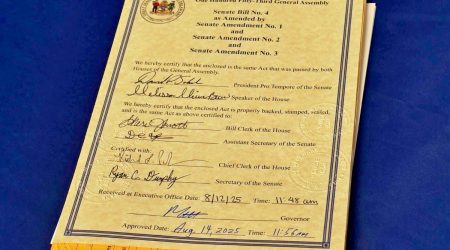 One Hundred Fifty-Third General Assembly
Senate Bill No. 4
as Amended by
Senate Amendment No. 1
and
Senate Amendment No. 2
and
Senate Amendment No. 3
We hereby certify that the enclosed is the same Act that was passed by both
Houses of the General Assembly.
President Pro Tempore of the Senate
Speaker of the House
We hereby certify that the enclosed Act is properly backed, stamped, sealed,
and is the same Act as above certified to:
Bill Clerk of the House
Assistant Secretary of the Senate
Certified with:
Chief Clerk of the House
Ryan C. Dunphy Secretary of the Senate
Received at Executive Office Date: 8/12/25 Time: 11:48 am
Governor
Approved Date: Aug 19, 2025 Time: 11:56am